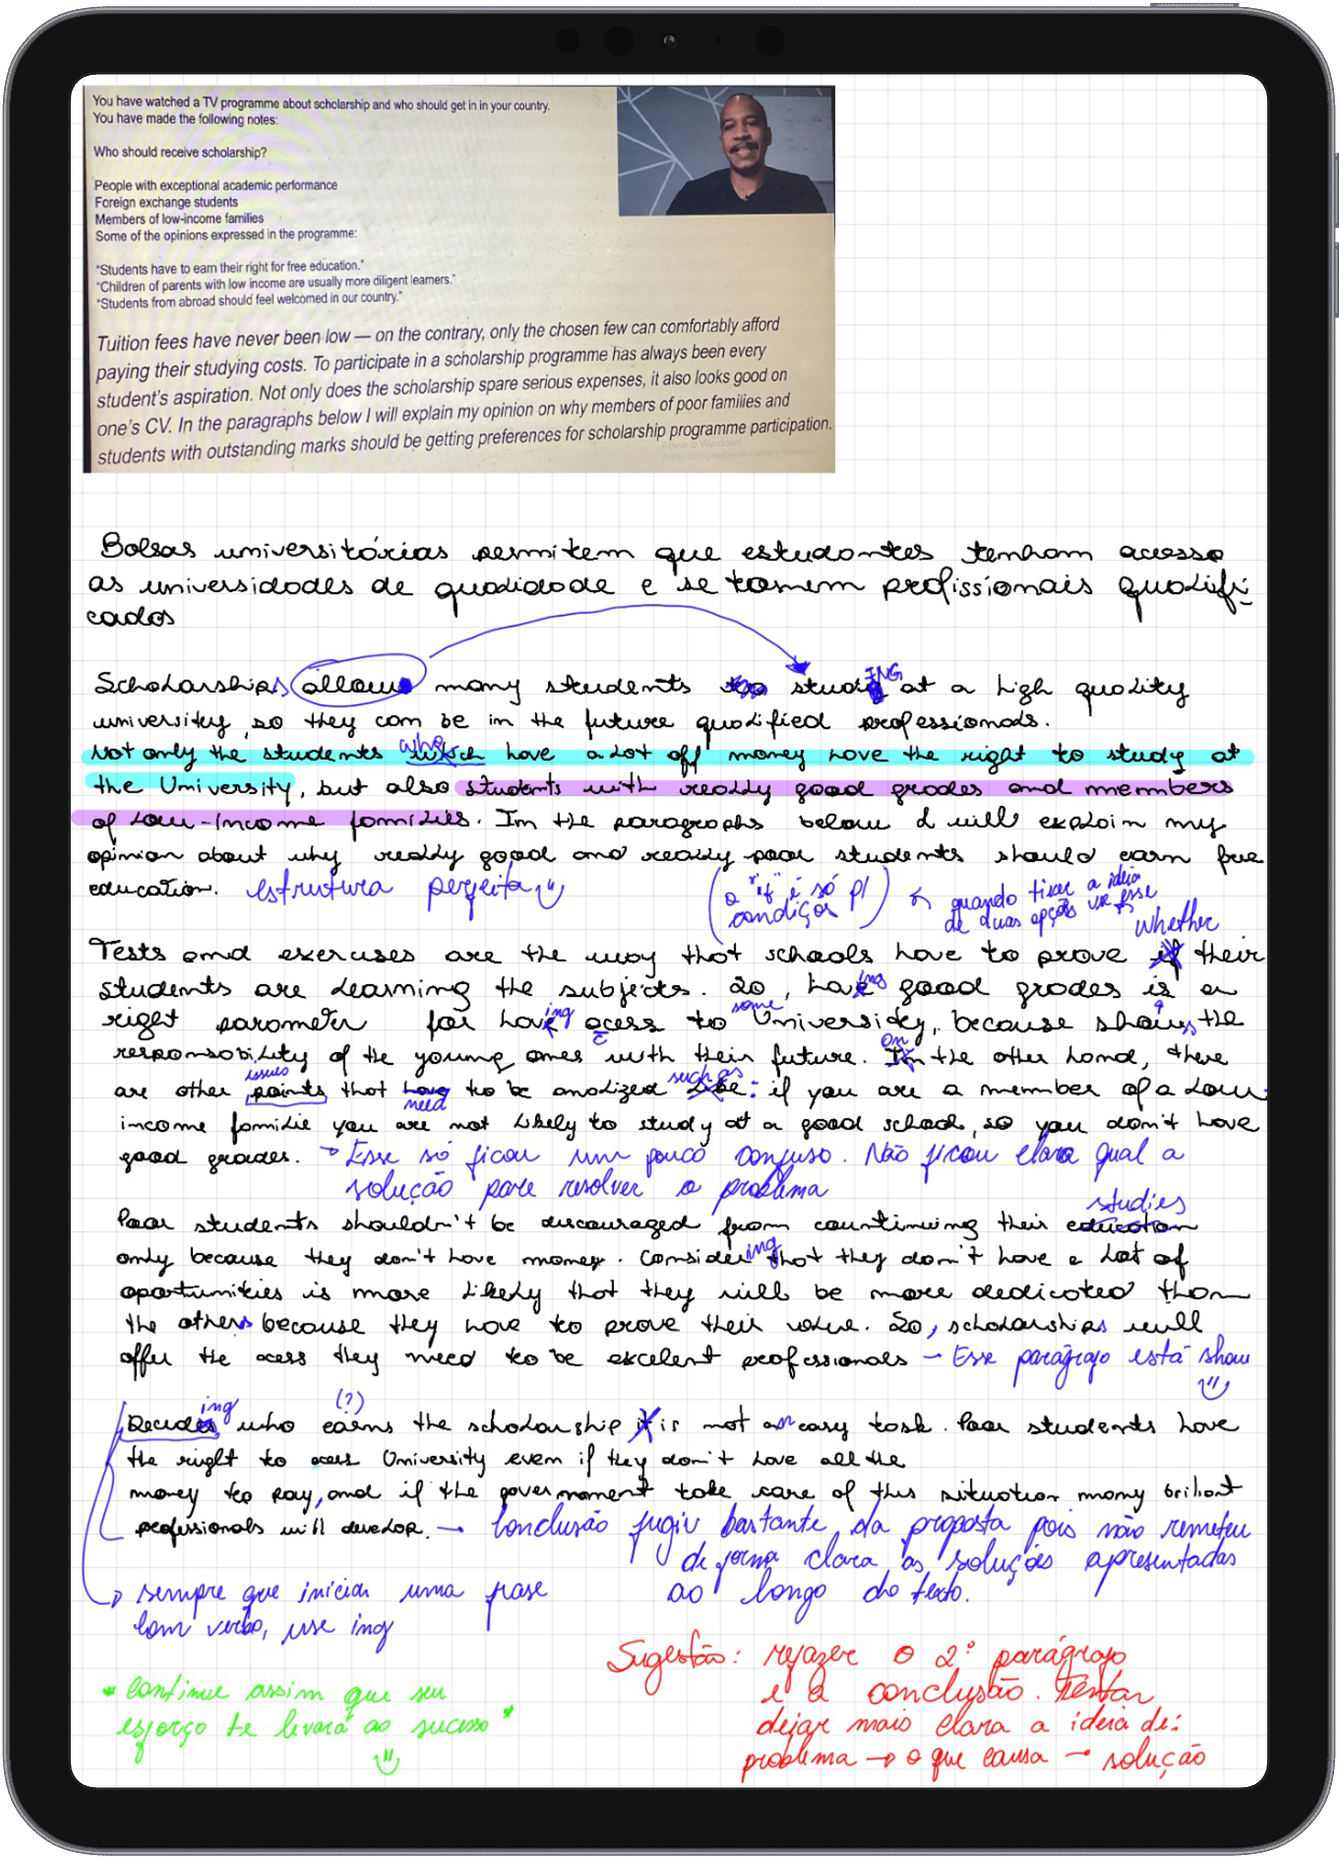 You have watched a TV programme about scholarship and who should get in in your country.
You have made the following notes:
Who should receive scholarship?
People with exceptional academic performance
Foreign exchange students
Members of low-income families
Some of the opinions expressed in the programme:
"Students have to earn their right for free education."
"Children of parents with low income are usually more diligent learners."
"Students from abroad should feel welcomed in our country."
Tuition fees have never been low — on the contrary, only the chosen few can comfortably afford
paying their studying costs. To participate in a scholarship programme has always been every
student's aspiration. Not only does the scholarship spare serious expenses, it also looks good on
one's CV. In the paragraphs below I will explain my opinion on why members of poor families and
students with outstanding marks should be getting preferences for scholarship programme participation.
Bolsas universitórias permitem que estudantes tenham acesso
as universidades de qualidade e se tornem profissionais qualifi-
cados
Scholarships allow many students to study ING at a high quality
university, so they can be in the future qualified professionals.
who
Not only the students which have a lot off money have the right to study at
the University, but also students with really good grades and members
of low-income families. In the paragraphs below I will explain my
opinion about why really good and really poor students should earn free
education. estrutura perfeita
(o "if" é só p/
condições)
quando tiver a ideia
de duas opções use esse
whether
Tests and exercises are the way that schools have to prove if their
students are learning the subjects. So, have ing good grades is a
ing some
right parameter for have acess to University, because shows the
c
on
responsobility of the young ones with their future. In the other hand, there
issues such as
are other points that have to be analized like: if you are a member of a low-
need
income familie you are not likely to study at a good school, so you don't have
good grades. → Esse só ficou um pouco confuso. Não ficou claro qual a
solução para resolver o problema
studies
Poor students shouldn't be discouraged from countinuing their education
only because they don't have money. Consider ing that they don't have a lot of
oportunities is more likely that they will be more dedicated than
the others because they have to prove their value. So, scholarships will
offer the acess they need to be excelent professionals — Esse parágrafo está show
ing (?)
Decides who earns the scholarship it is not an easy task. Poor students have
the right to acess University even if they don't have all the
money to pay, and if the governament take care of this situation many briliant
professionals will develop. → Conclusão fugiu bastante da proposta pois não remeteu
de forma clara as soluções apresentadas
ao longo do texto.
sempre que iniciar uma frase
com verbo, use ing
Sugestão: refazer o 2º parágrafo
e a conclusão. Tentar
deixar mais clara a ideia de:
problema → o que causa → solução
* Continue assim que seu
esforço te levará ao sucesso *